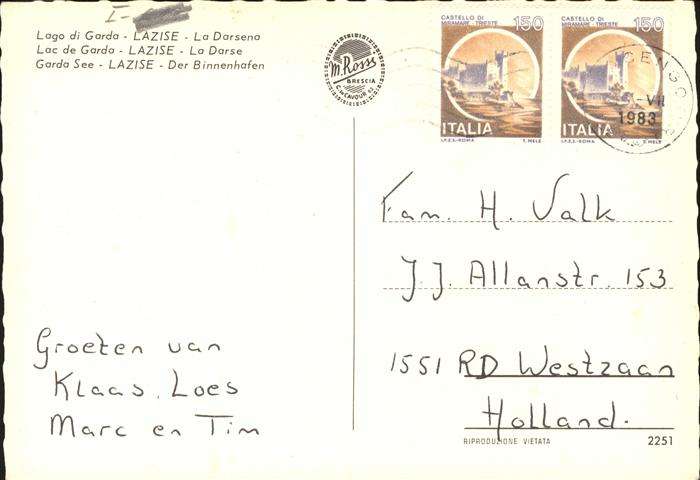 I-
Lago di Garda - LAZISE - La Darsena
Lac de Garda - LAZISE - La Darse
Garda See - LAZISE - Der Binnenhafen
m. Rossi
BRESCIA
CASTELLO DI
MIRAMARE - TRIESTE
150
ITALIA
I.P.Z.S.-ROMA
T. MELE
CASTELLO DI
MIRAMARE - TRIESTE
150
ITALIA
I.P.Z.S.-ROMA
T. MELE
-VII
1983
Fam. H. Valk
J.J. Allanstr. 153
1551 RD Westzaan
Holland.
Groeten van
Klaas, Loes
Marc en Tim
RIPRODUZIONE VIETATA
2251